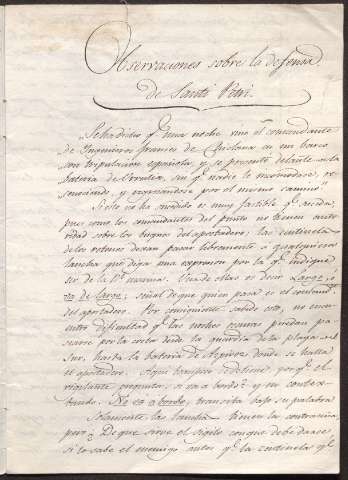 Observaciones sobre la defensa
de Santi Petri.
Se ha dicho qe. una noche vino el comandante
de Ingenieros frances de Chiclana en un barco
con tripulacion española, y se presentó delante de la
bateria de Urrutia, sin qe. nadie le incomodase, re
conociendo, y regresandose por el mismo camino.
Si esto no ha sucedido es muy factible qe. suceda,
pues como los comandantes del punto no tienen auto
ridad sobre los buques del apostadero; las centinelas
de los retenes dexan pasar libremente a qualquiera
lancha que diga una expresion por la qe. indique
ser de la Rl. marina. Una de ellas es decir Largo, ó
va de largo; señal de que quien pasa es el comand.
del apostadero. Por consiguiente sabido esto, no encu
entro dificultad qe. las noches oscuras puedan pa
sarse por la costa desde la guardia de la playa del
Sur, hasta la bateria de Aspiroz donde se halla
el apostadero. Aqui tampoco deben temer porqe. el
vigilante pregunta, si va a bordo? y en contes
tando. No va a bordo, transita bajo su palabra
Solamente las lanchas tienen la contraseña,
pero? De que sirve el sigilo con que debe darse,
si lo sabe el enemigo antes qe. la centinela qe.